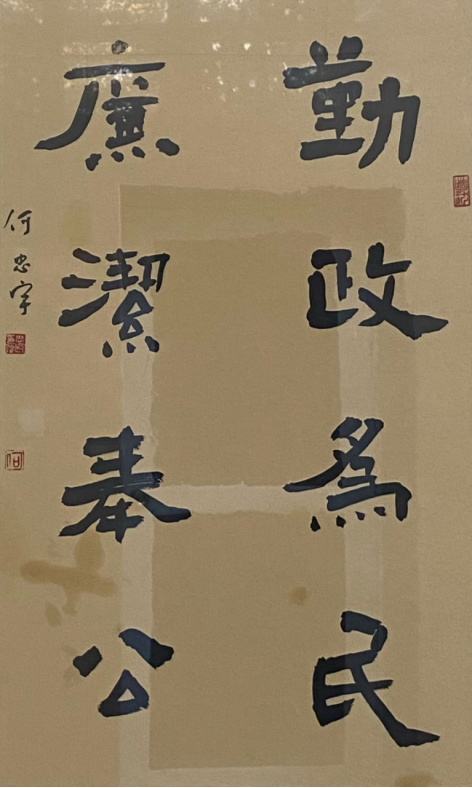 勤政為民
廉潔奉公
何忠宇